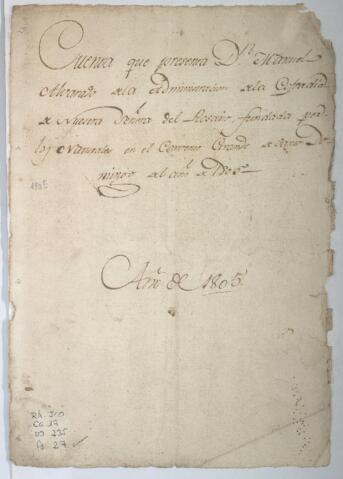 Cuenta que presenta Dn Manuel
Alvarado de la Administracion de la Cofradia
de Nuestra Señora del Rosario, fundada por
los Naturales en el Convento Grande de Sto Do-
mingo al año de 1805
1805
Año de 1805
CO 17
fs 27